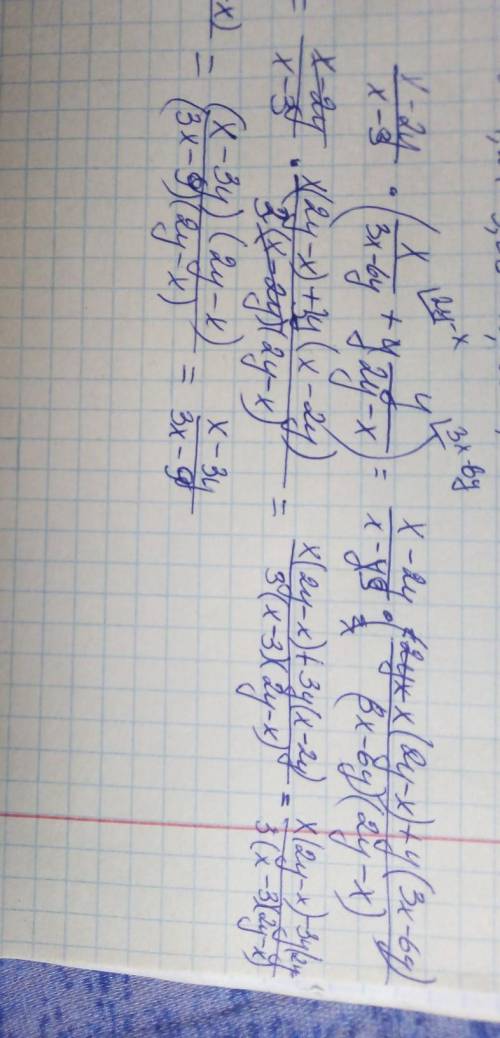 (x-2y)/(x-3) · (x/(3x-6y) + y/(2y-x)) = (x-2y)/(x-3) · (x(2y-x)+y(3x-6y))/((3x-6y)(2y-x))
= (x-2y)/(x-3) · (x(2y-x)+3y(x-2y))/(3(x-2y)(2y-x)) = (x(2y-x)+3y(x-2y))/(3(x-3)(2y-x)) = (x(2y-x)-3y(2y
-x))/(3(x-3)(2y-x))
x) = ((x-3y)(2y-x))/((3x-9)(2y-x)) = (x-3y)/(3x-9)